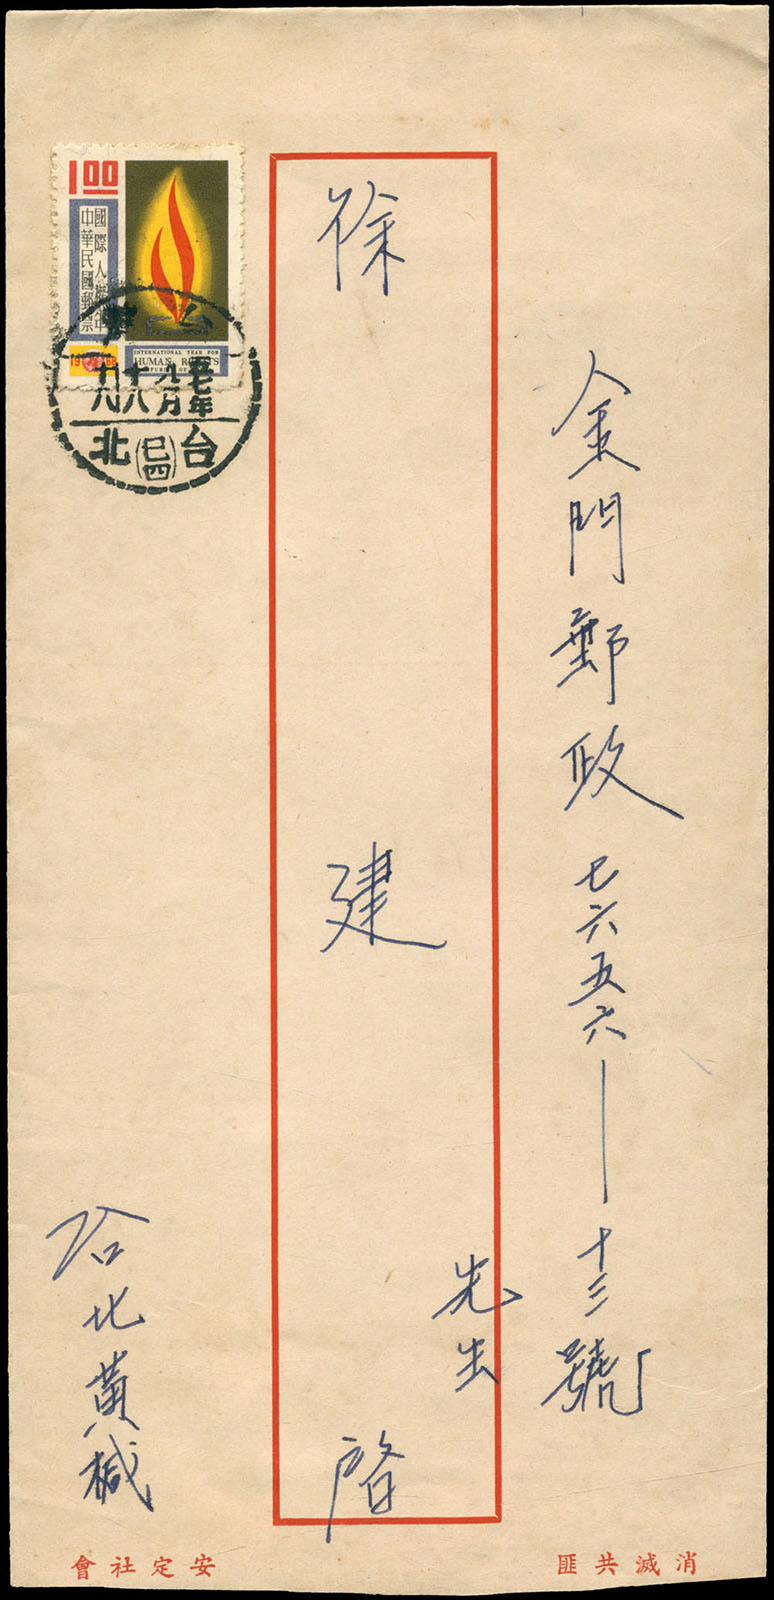 金門郵政七六五六—十三號
徐建先生啓
台北黃椷
1.00
國際人權年
中華民國郵票
1968
INTERNATIONAL YEAR FOR
HUMAN RIGHTS
五七年
九月
十八
台北
(巳四)
消滅共匪
安定社會